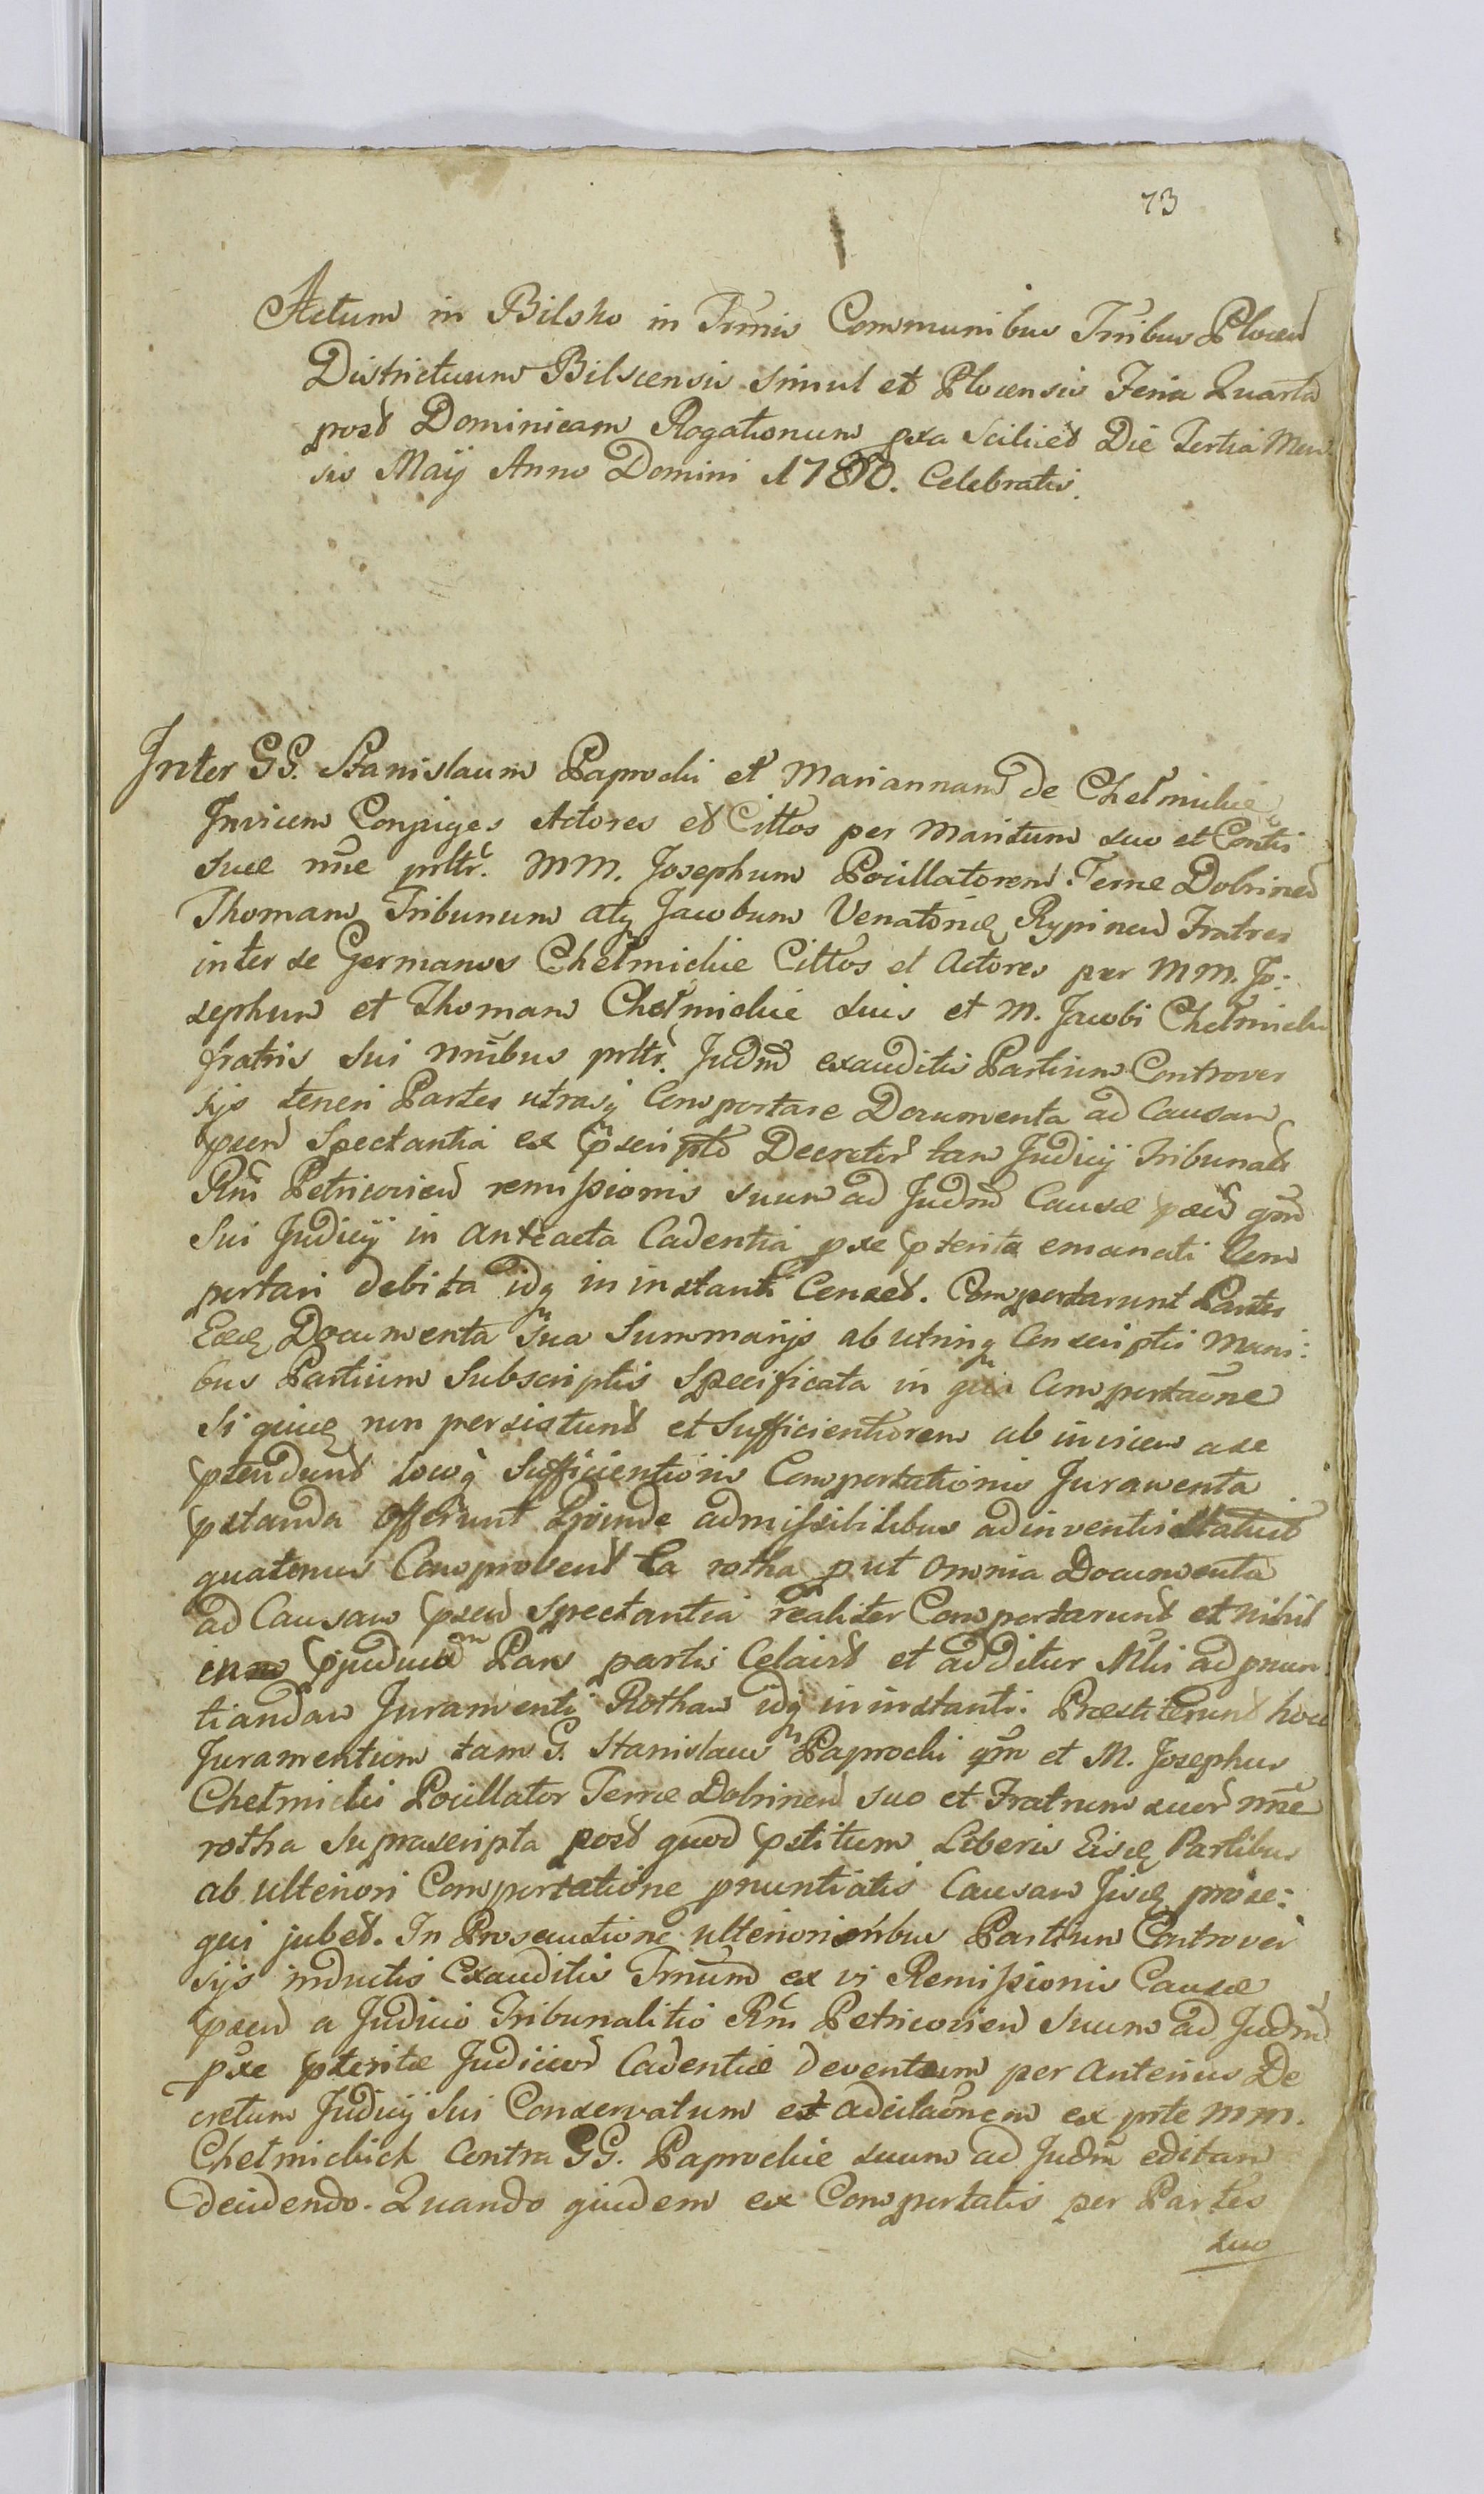 73
Actum in Bilsko in Trmis Communibus Trribus Plocen
Districtuum Bilscensis simul et Plocensis Feria Quarta
post Dominicam Rogationum pxa scilicet Die Tertia Men
sis Maij Anno Domini 1780. Celebratis.
Inter GG. Stanislaum Paprocki et Mariannam de Chełmickie
Invicem Conjuges Actores et Cittos per Maritum suo et Contis
suae nne prltr. MM. Josephum Pocillatorem Terrae Dobrinen
Thomam Tribunum atq Jacobum Venatorie Rypinen Fratres
inter se Germanos Chełmickie Cittos et Actores per MM. Jo:
sephum et Thomam Chełmickie suis et M. Jacobi Chełmicki
fratris sui nnibus prltr. Judm exauditis Partium Controver
sijs teneri Partes utrasq Comportare Documenta ad Causam
psen Spectantia ex pscripto Decretor tam Judicij Tribunalis
Rni Petricovien remissionis suum ad Judm Causae psen qm
Sui Judicij in anteacta Cadentia pxe pterita emanati Com
portari debita idq in instanti Censet. Comportarunt Partes
Eaed Documenta sua Summarijs ab utrinq Conscriptis Mani:
bus Partium Subscriptis Specificata in qua Comportaone
Si quid non persistunt et Sufficientiorem ab invicem a se
ptendunt locoq Sufficientioris Comportationis Juramenta
pstanda offerunt Proinde admissibilibus adinventis Statuit
quatenus Comprobent Ea rotha put Omnia Documenta
ad Causam psen Spectantia realiter Comportarunt et nihil
in pjudicium Pars partis Celavit et additur Mlis ad pnun
tiandam Juramenti Rotham idq in instanti. Praestiterunt hoc
Juramentum tam G. Stanislaus Paprocki qm et M. Josephus
Chełmicki Pocillator Terrae Dobrinen suo et Fratrum suor nne
rotha suprascripta post quod pstitum Liberis Eisd Partibus
ab ulteriori Comportatione pnuntiatis Causam Iisd prose:
qui jubet. In Prosecutione ulterioribus Partium Controver
sijs inductis Exauditis Trnum ex vi Remissionis Causae
psen a Judicio Tribunalitio Rni Petricovien suum ad Judm
pxe pteritae Judicior Cadentiae deventum per Anterius De
cretum Judicij Sui Conservatum et adcitaonem ex prte MM.
Chełmickich Contra GG. Paprockie suum ad Judm editam
decidendo. Quando quidem ex Comportatis per Partes
suo